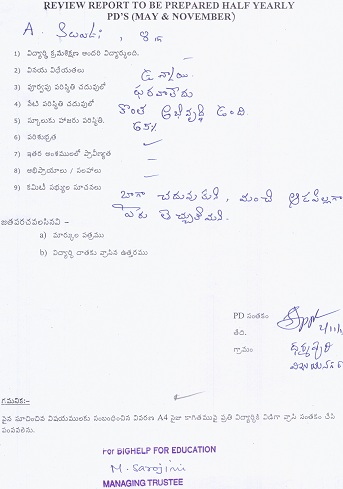 REVIEW REPORT TO BE PREPARED HALF YEARLY
PD'S (MAY & NOVEMBER)
A. Swati, 8
1) విద్యార్థి క్రమశిక్షణ అందరి విద్యార్థులది.
2) వినయ విధేయతలు ఉన్నాయి.
3) పూర్వపు పరిస్థితి చదువులో ఫరవాలేదు
4) నేటి పరిస్థితి చదువులో కొంత అభివృద్ధి ఉంది.
5) స్కూలుకు హాజరు పరిస్థితి. 65%
6) పరిశుభ్రత ✓
7) ఇతర అంశములలో ప్రావీణ్యత –
8) అభిప్రాయాలు / సలహాలు –
9) కమిటీ సభ్యుల సూచనలు బాగా చదువుకుని, మంచి ఆడపిల్లగా
పేరు తెచ్చుకోవాలి.
జతపరచవలసినవి –
a) మార్కుల పత్రము
b) విద్యార్థి దాతకు వ్రాసిన ఉత్తరము
PD సంతకం
తేది. 2/11/
గ్రామం
గమనిక:-
పైన సూచించిన విషయములకు సంబంధించిన వివరణ A4 సైజు కాగితముపై ప్రతి విద్యార్థికి విడిగా వ్రాసి సంతకం చేసి
పంపవలెను.
For BIGHELP FOR EDUCATION
M. Sarojini
MANAGING TRUSTEE